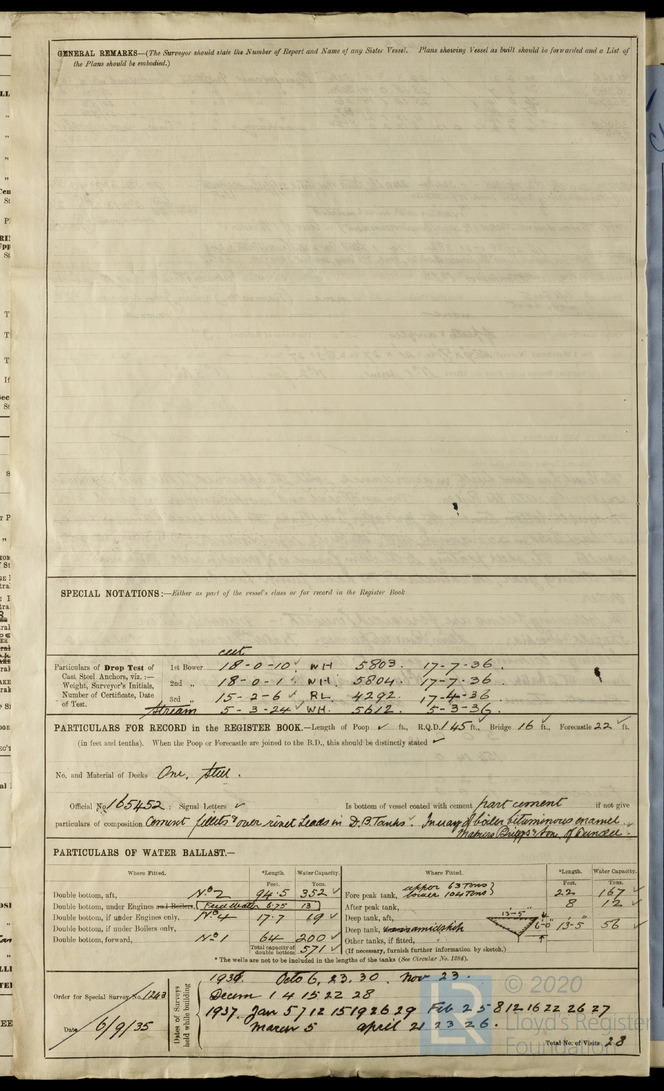 GENERAL REMARKS—(The Surveyor should state the Number of Report and Name of any Sister Vessel. Plans showing Vessel as built should be forwarded and a List of
the Plans should be embodied.)
SPECIAL NOTATIONS:—Either as part of the vessel's class or for record in the Register Book
cwt
Particulars of Drop Test of Cast Steel Anchors, viz.:— Weight, Surveyor's Initials, Number of Certificate, Date of Test.
1st Bower 18-0-10 ✓ WH 5803. 17-7-36.
2nd „ 18-0-1 ✓ WH. 5804. 17-7-36
3rd „ 15-2-6 ✓ RL. 4292. 17-4-36
Stream 5-3-24 ✓ WH. 5612. 5-3-36.
PARTICULARS FOR RECORD in the REGISTER BOOK.—Length of Poop ✓ ft., R.Q.D. 145 ft., Bridge 16 ft., Forecastle 22 ft.
(in feet and tenths). When the Poop or Forecastle are joined to the B.D., this should be distinctly stated ✓
No. and Material of Decks One, Steel.
Official No. 165452; Signal Letters ✓ Is bottom of vessel coated with cement part cement if not give
particulars of composition Cement fillets & over rivet heads in D.B. Tanks. In way of boiler bituminous enamel.
Briggs & Son of Dundee.
PARTICULARS OF WATER BALLAST.—
Where Fitted. *Length. Water Capacity. Where Fitted. *Length. Water Capacity.
Feet. Tons. Feet. Tons.
Double bottom, aft, No 2 94.5 352 ✓ Fore peak tank, upper 63 Tons lower 104 Tons } 22 167 ✓
Double bottom, under Engines and Boilers, Feed Water 6.75 13 After peak tank, 8 12 ✓
Double bottom, if under Engines only, No 4 17.7 19 ✓ Deep tank, aft,
Double bottom, if under Boilers only, Deep tank, amidships 13'-5" 6'-0" 13-5 56 ✓
Double bottom, forward, No 1 64 200 ✓ Other tanks, if fitted,
Total capacity of double bottom 571 ✓ (If necessary, furnish further information by sketch.)
* The wells are not to be included in the lengths of the tanks (See Circular No. 1284).
Order for Special Survey No. 1243
Date 6/9/35
Dates of Surveys held while building
1936. Octo 6, 23, 30. Nov 23.
Decem 1 4 15 22 28
1937. Jan 5 7 12 15 19 26 29 Feb 2 5 8 12 16 22 26 27
March 5 april 21 23 26.
Total No. of Visits 28
© 2020
Lloyd's Register
Foundation
LR